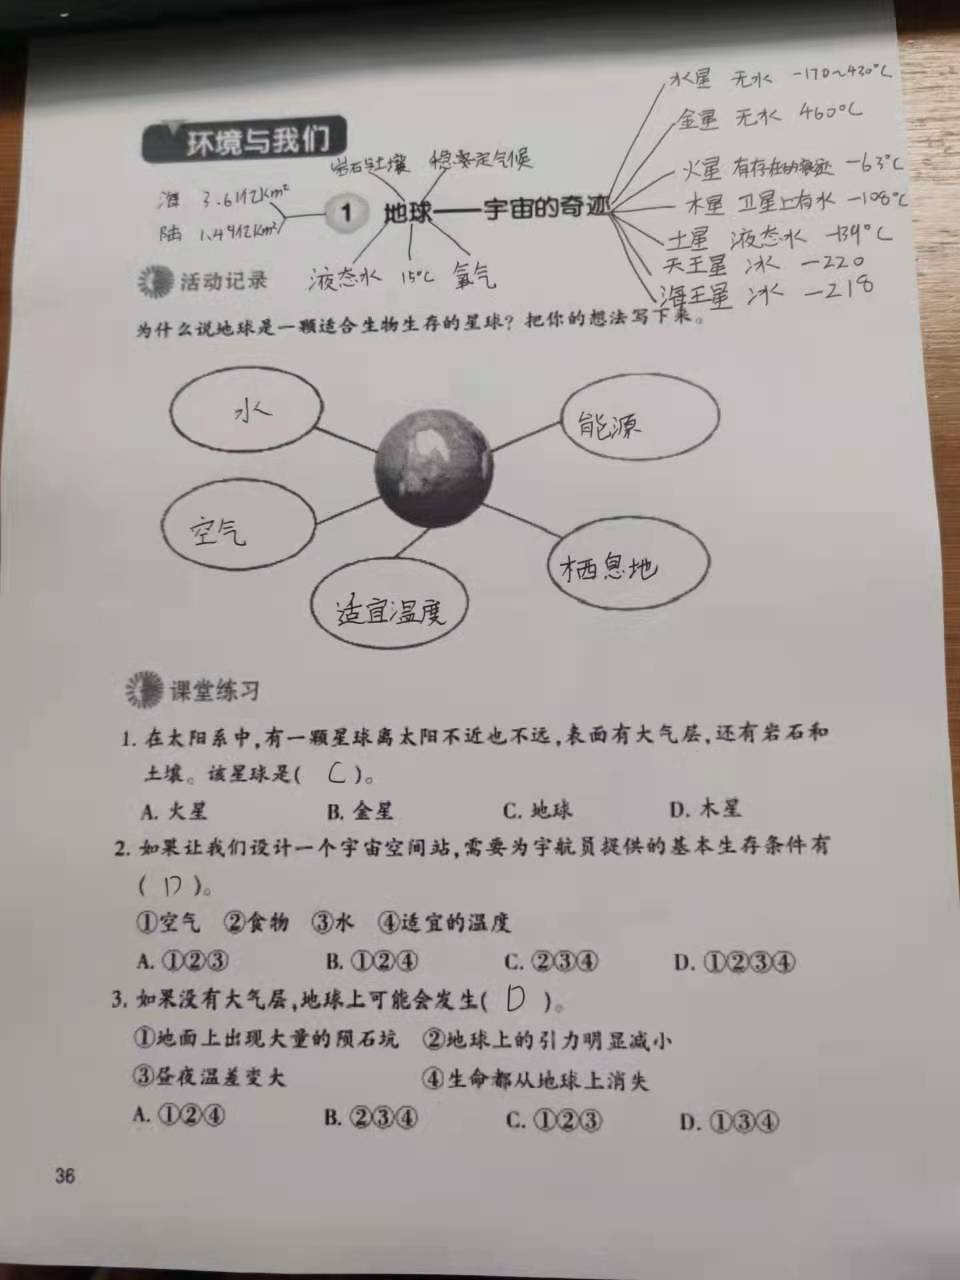 水星 无水 -170~430°C
环境与我们
金星 无水 460°C
岩石土壤 稳定气候
火星 有存在的痕迹 -63°C
海 3.6亿km²
1 地球——宇宙的奇迹
木星 卫星上有水 -108°C
陆 1.49亿km²
土星 液态水 -139°C
天王星 冰 -220
活动记录
液态水 15°C 氧气
海王星 冰 -218
为什么说地球是一颗适合生物生存的星球?把你的想法写下来。
水
能源
空气
栖息地
适宜温度
课堂练习
1. 在太阳系中,有一颗星球离太阳不近也不远,表面有大气层,还有岩石和
土壤。该星球是( C )。
A. 火星 B. 金星 C. 地球 D. 木星
2. 如果让我们设计一个宇宙空间站,需要为宇航员提供的基本生存条件有
( D )。
①空气 ②食物 ③水 ④适宜的温度
A. ①②③ B. ①②④ C. ②③④ D. ①②③④
3. 如果没有大气层,地球上可能会发生( D )。
①地面上出现大量的陨石坑 ②地球上的引力明显减小
③昼夜温差变大 ④生命都从地球上消失
A. ①②④ B. ②③④ C. ①②③ D. ①③④
36